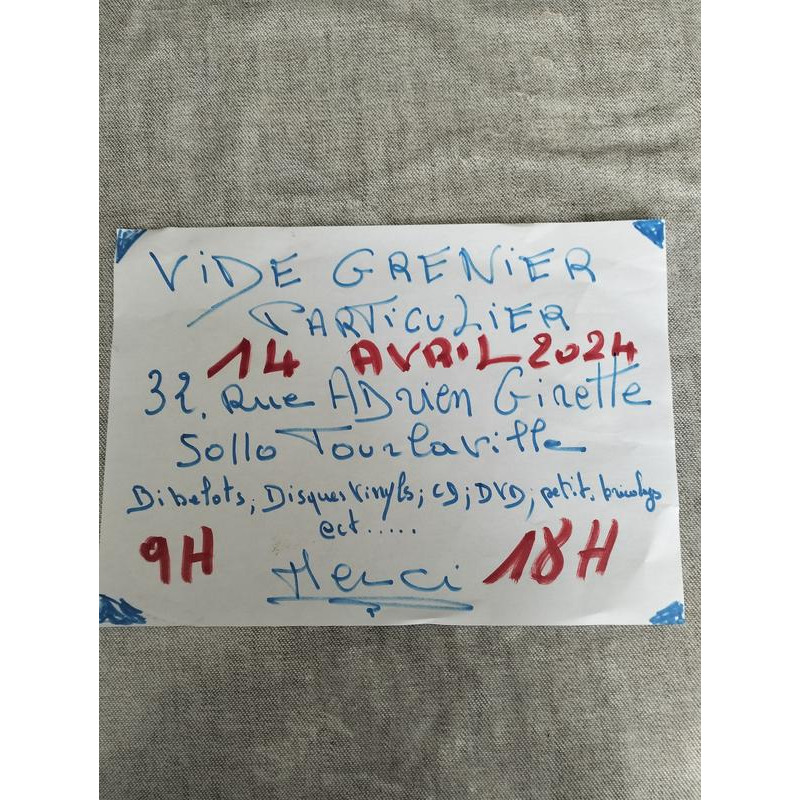 ViDE GRENiER
PARTiCULiER
14 AVRIL 2024
32, Rue ADrien Girette
50110 Tourlaville
Bibelots; Disques Vinyls; CD; DVD; petit. bricolage
ect.....
9H Merci 18H